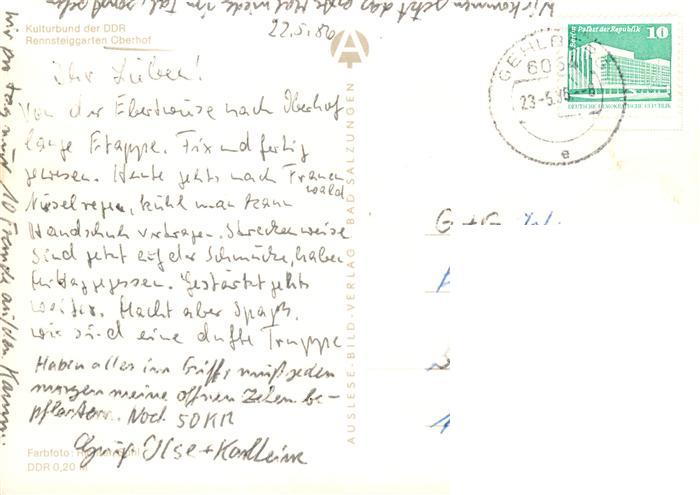 Kulturbund der DDR
Rennsteiggarten Oberhof
22.5.86
Ihr Lieben!
Von der Ebertswiese nach Oberhof
lange Etappe. Fix und fertig
gewesen. Heute gehts nach Frauen
wald
Nieselregen, kühl man kann
Handschuh vertragen. Streckenweise
Sind jetzt auf der Schmücke, haben
Mittag gegessen. Gestärkt gehts
weiter. Macht aber Spaß,
wir sind eine dufte Truppe
Haben alles im Griff, muß jeden
morgen meine offnen Zehen be-
pflastern. Noch 50 KM
Gruß Ilse + Karlheinz
Wir kommen jetzt das erste Mal wieder im Tal
10 Freunde auf dem Kamm.
Farbfoto:
DDR 0,20 M
AUSLESE-BILD-VERLAG BAD SALZUNGEN
GEHLBERG
6054
23.-5.86
e
Berlin Palast der Republik
10
DEUTSCHE DEMOKRATISCHE REPUBLIK